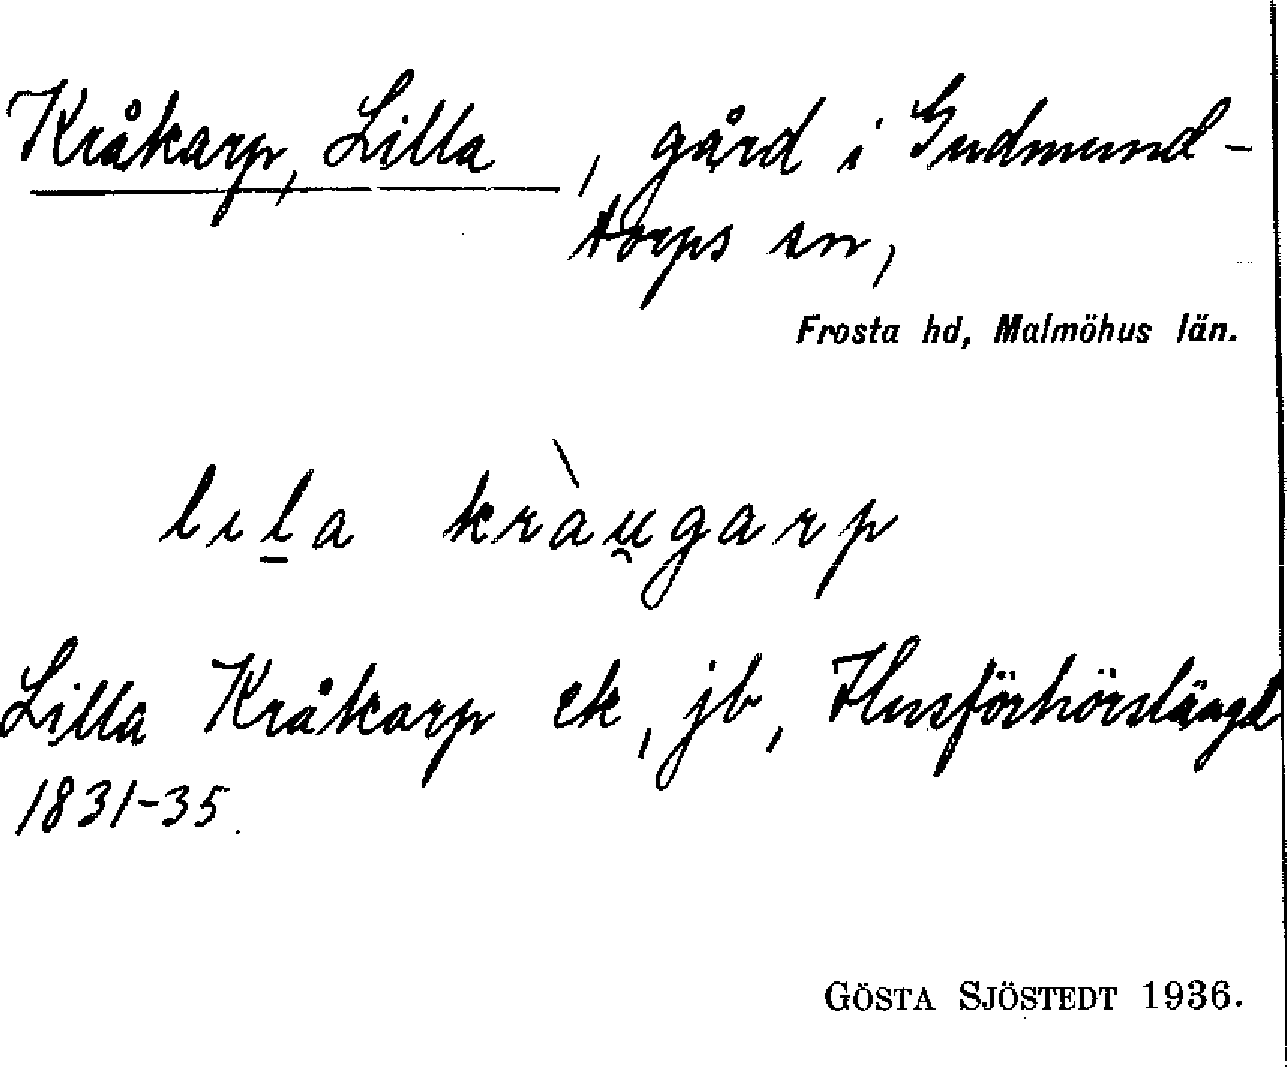 Kråkarp, Lilla, gård i Gudmund-
torps sn,
Frosta hd, Malmöhus län.
lıl̲a kràu̯garp
Lilla Kråkarp ek, jb, Husförhörslängd
1831-35.
GÖSTA SJÖSTEDT 1936.